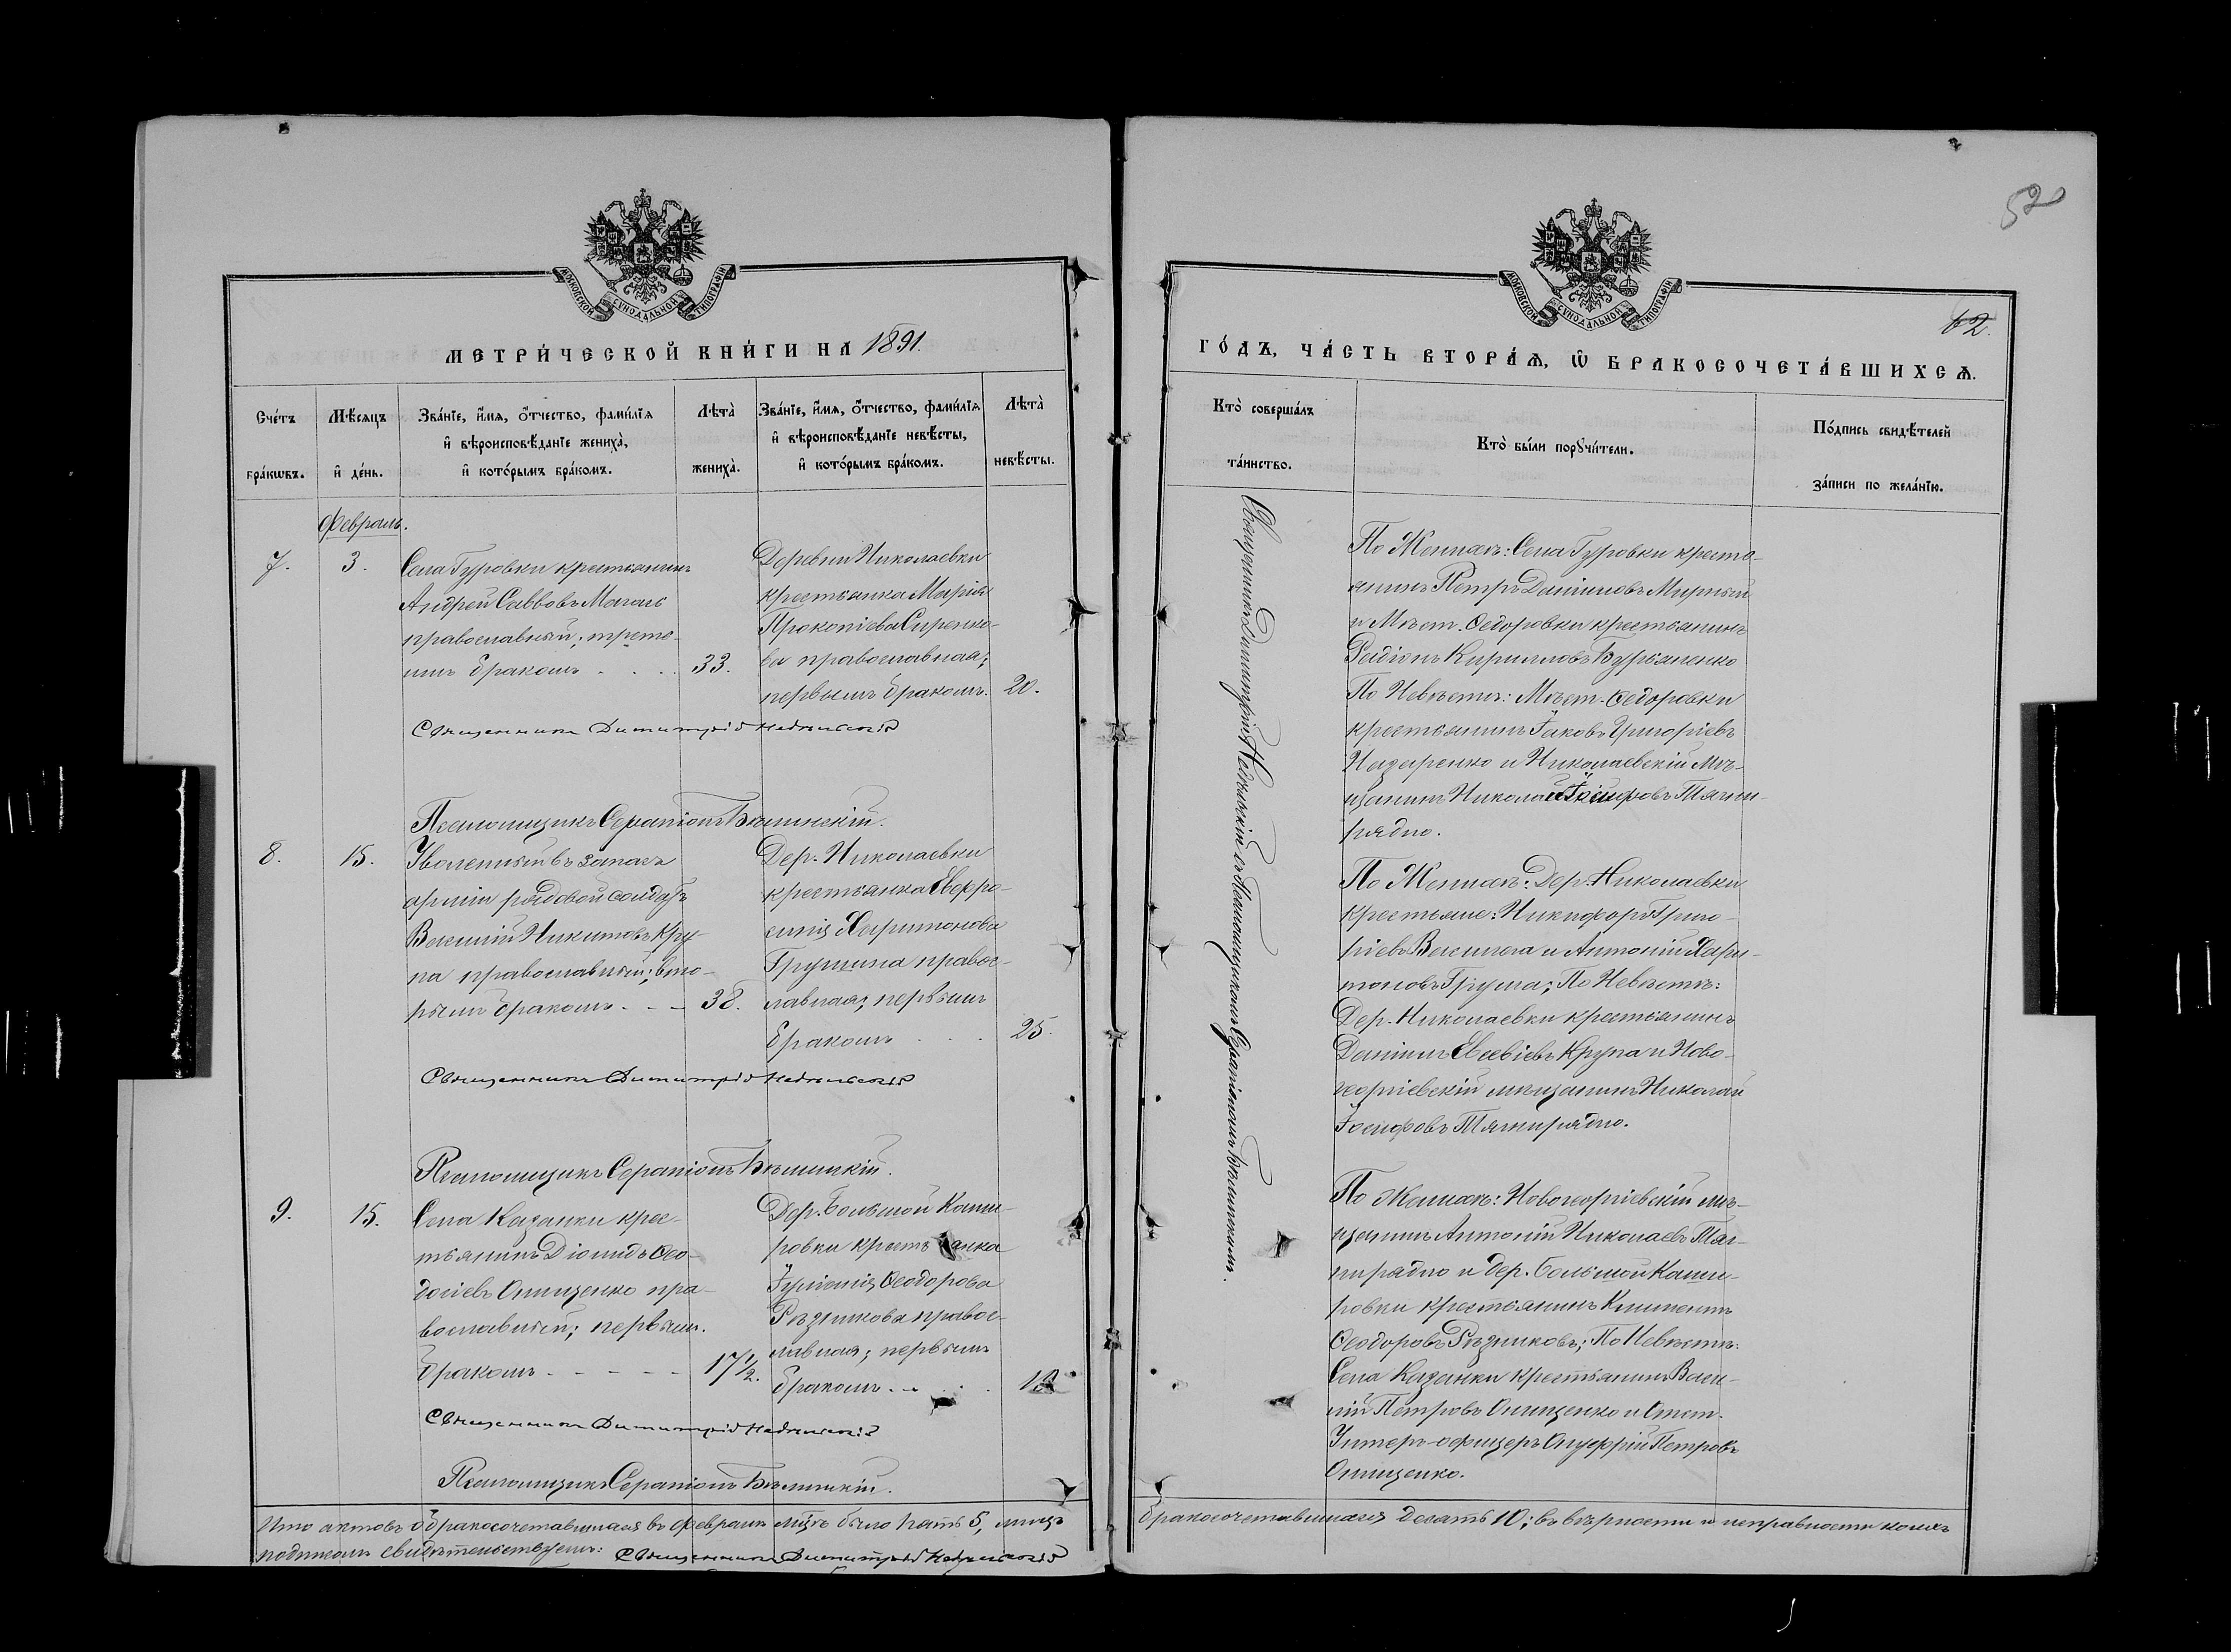 МОСКОВСКОЙ СѴНОДАЛЬНОЙ ТИПОГРАФІИ
МЕТРИ́ЧЕСКОЙ КНИ́ГИ НА 1891.
Сче́тъ бра́кѡвъ.
Мѣ́сяцъ и҆ де́нь.
Зва́нїе, и҆́мя, ѻ҆́тчество, фами́лїя
и҆ вѣроисповѣ́данїе жениха̀,
и҆ кото́рымъ бра́комъ.
Лѣта̀ жениха̀.
Зва́нїе, и҆́мя, ѻ҆́тчество, фами́лїя
и҆ вѣроисповѣ́данїе невѣ́сты,
и҆ кото́рымъ бра́комъ.
Лѣта̀ невѣ́сты.
Февраль.
7.
3.
Села Гуровки крестьянинъ
Андрей Саввовъ Магасъ
православный; треть-
имъ бракомъ . . . . 33.
Деревни Николаевки
крестьянка Марія
Прокопіева Сиренко-
ва православная;
первымъ бракомъ. 20.
Священникъ Димитрій Недзельскій
Псаломщикъ Серапіонъ Бѣлинскій.
8.
15.
Уволенный въ запасъ
арміи рядовой солдатъ
Василій Никитовъ Кру-
па православный; вто-
рымъ бракомъ - - - 38.
Дер. Николаевки
крестьянка Евфро-
синія Харитонова
Грушина правос-
лавная; первымъ
бракомъ . . . 25.
Священникъ Димитрій Недзельскій
Псаломщикъ Серапіонъ Бѣлинскій.
9.
15.
Села Казанки крес-
тьянинъ Діомидъ Ѳео-
досіевъ Онищенко пра-
вославный; первым.
бракомъ - - - - - 17½.
Дер. Большой Каши-
ровки крестьянка
Іуліанія Ѳеодорова
Рѣзникова правос-
лавная; первымъ
бракомъ . . . .
Священникъ Димитрій Недзельскій
Псаломщикъ Серапіонъ Бѣлинскій.
Итого актовъ о бракосочетавшихся въ Февралѣ мцѣ было пять 5, лицъ
подписомъ свидѣтельствуемъ: Священникъ Димитрій Недзельскій
52
МОСКОВСКОЙ СѴНОДАЛЬНОЙ ТИПОГРАФІИ
62.
ГО́ДЪ, ЧА́СТЬ ВТОРА́Ѧ, Ѽ БРАКОСОЧЕТА́ВШИХСѦ.
Кто̀ соверша́лъ та́инство.
Кто̀ бы́ли порꙋчи́тели.
По́дпись свидѣ́телей за́писи по жела́нїю.
Священникъ Димитрій Недзельскій съ Псаломщикомъ Серапіономъ Бѣлинскимъ.
По Женихѣ: Села Гуровки кресть-
янинъ Петръ Даніиловъ Мирный
и Мѣст. Ѳедоровки крестьянинъ
Радіонъ Кирилловъ Бурьяненко
По Невѣстѣ: Мѣст. Ѳедоровки
крестьянинъ Іаковъ Григоріевъ
Назаренко и Николаевскій мѣ-
щанинъ Николай Іосифовъ Тягни-
рядно.
По Женихѣ: Дер. Николаевки
крестьяне: Никифоръ Григо-
ріевъ Василега и Антоній Хари-
тоновъ Груша; По Невѣстѣ:
Дер. Николаевки крестьянинъ
Даніилъ Евсевіевъ Крупа и Ново-
георгіевскій мѣщанинъ Николай
Іосифовъ Тягнирядно.
По Женихѣ: Новогеоргіевскій мѣ-
щанинъ Антоній Николаевъ Тяг-
нирядно и дер. Большой Каши-
ровки крестьянинъ Климентъ
Ѳеодоровъ Рѣзниковъ; По Невѣстѣ:
Села Казанки крестьянинъ Васи-
лій Петровъ Онищенко и Отст.
Унтеръ-офицеръ Онуфрій Петровъ
Онищенко.
бракосочетавшихся десять 10; въ вѣрности и исправности коихъ